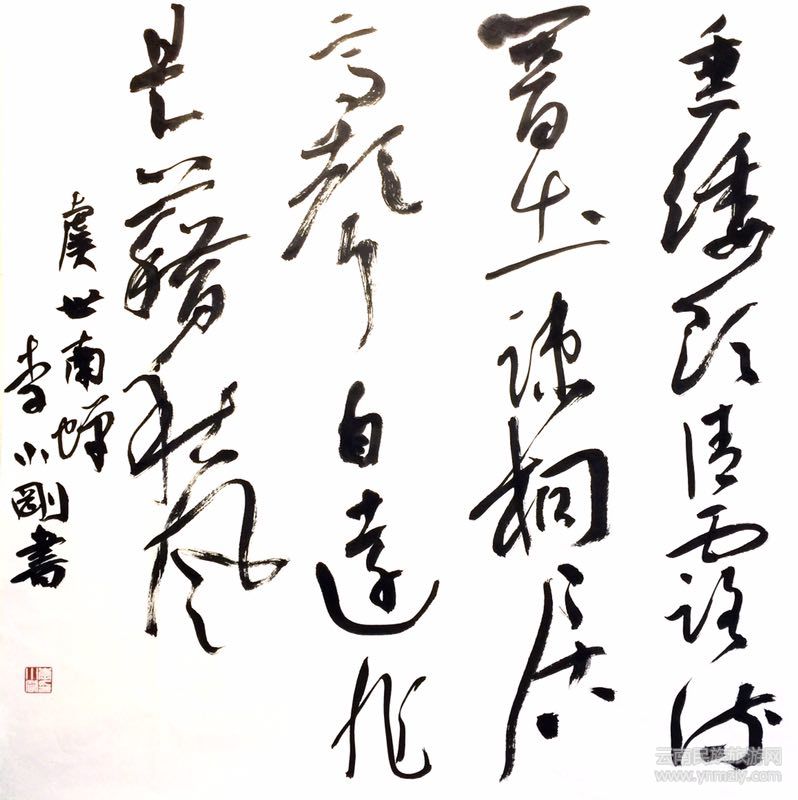 垂緌飲清露流
響出疎桐居
高聲自遠非
是藉秋風
虞世南蝉
李小剛書
云南民族旅游网
www.ynmzly.com